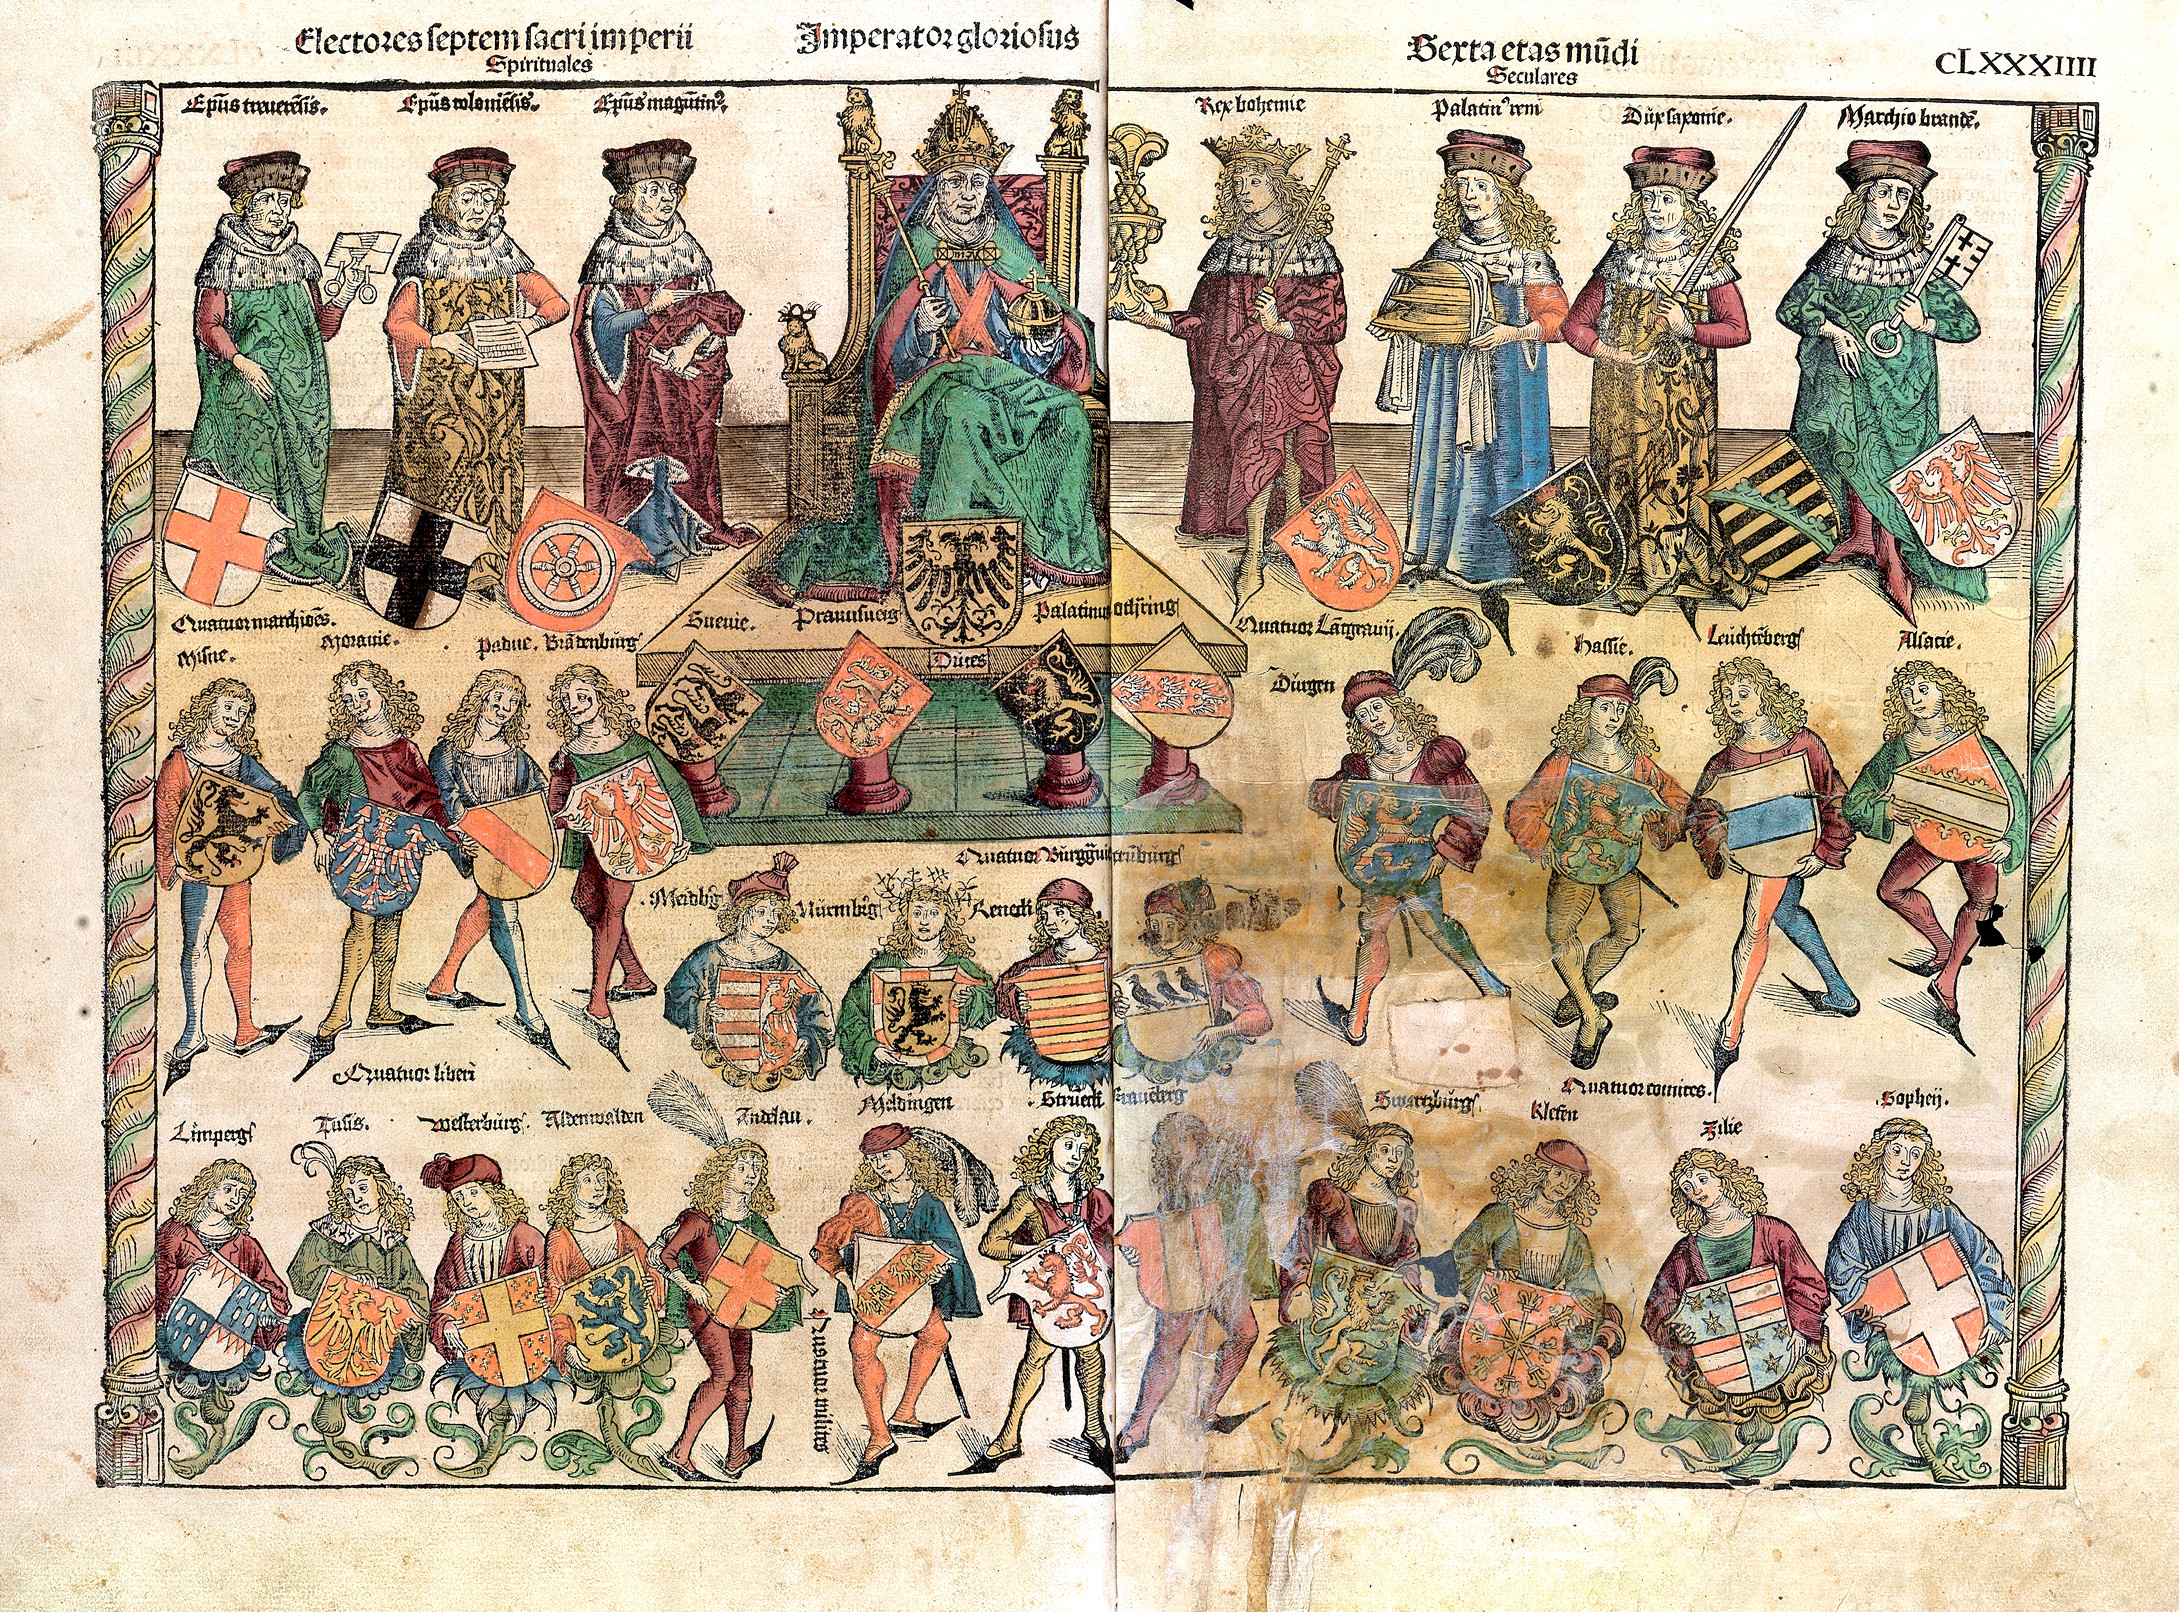 Electores septem sacri imperii
Spirituales
Imperator gloriosus
Sexta etas mūdi
Seculares
CLXXXIIII
Epūs treuerēsis.
Epūs coloniēsis.
Epūs magūtinꝰ.
Rex bohemie
Palatinꝰ reni
Dux saxonie.
Marchio brandē.
Quatuor marchiōes.
Misne.
Morauie.
Padue.
Brādenburg
Sueuie.
Praunsueig
Palatinus
Duces
Quatuor Lātgrauij.
Düringen
Hassie.
Leuchtēberg
Alsacie.
Quatuor Burggu
Meidbūg
Nürmbūg
Reneck
Quatuor liberi
Quatuor comites.
Limperg
Tusis.
Westerburg.
Aldenwalden
Andelau.
Meldingen
Strüeck
Frauēberg
Quatuor milites
Swartzburg.
Klefen
Zilie
Sophey.